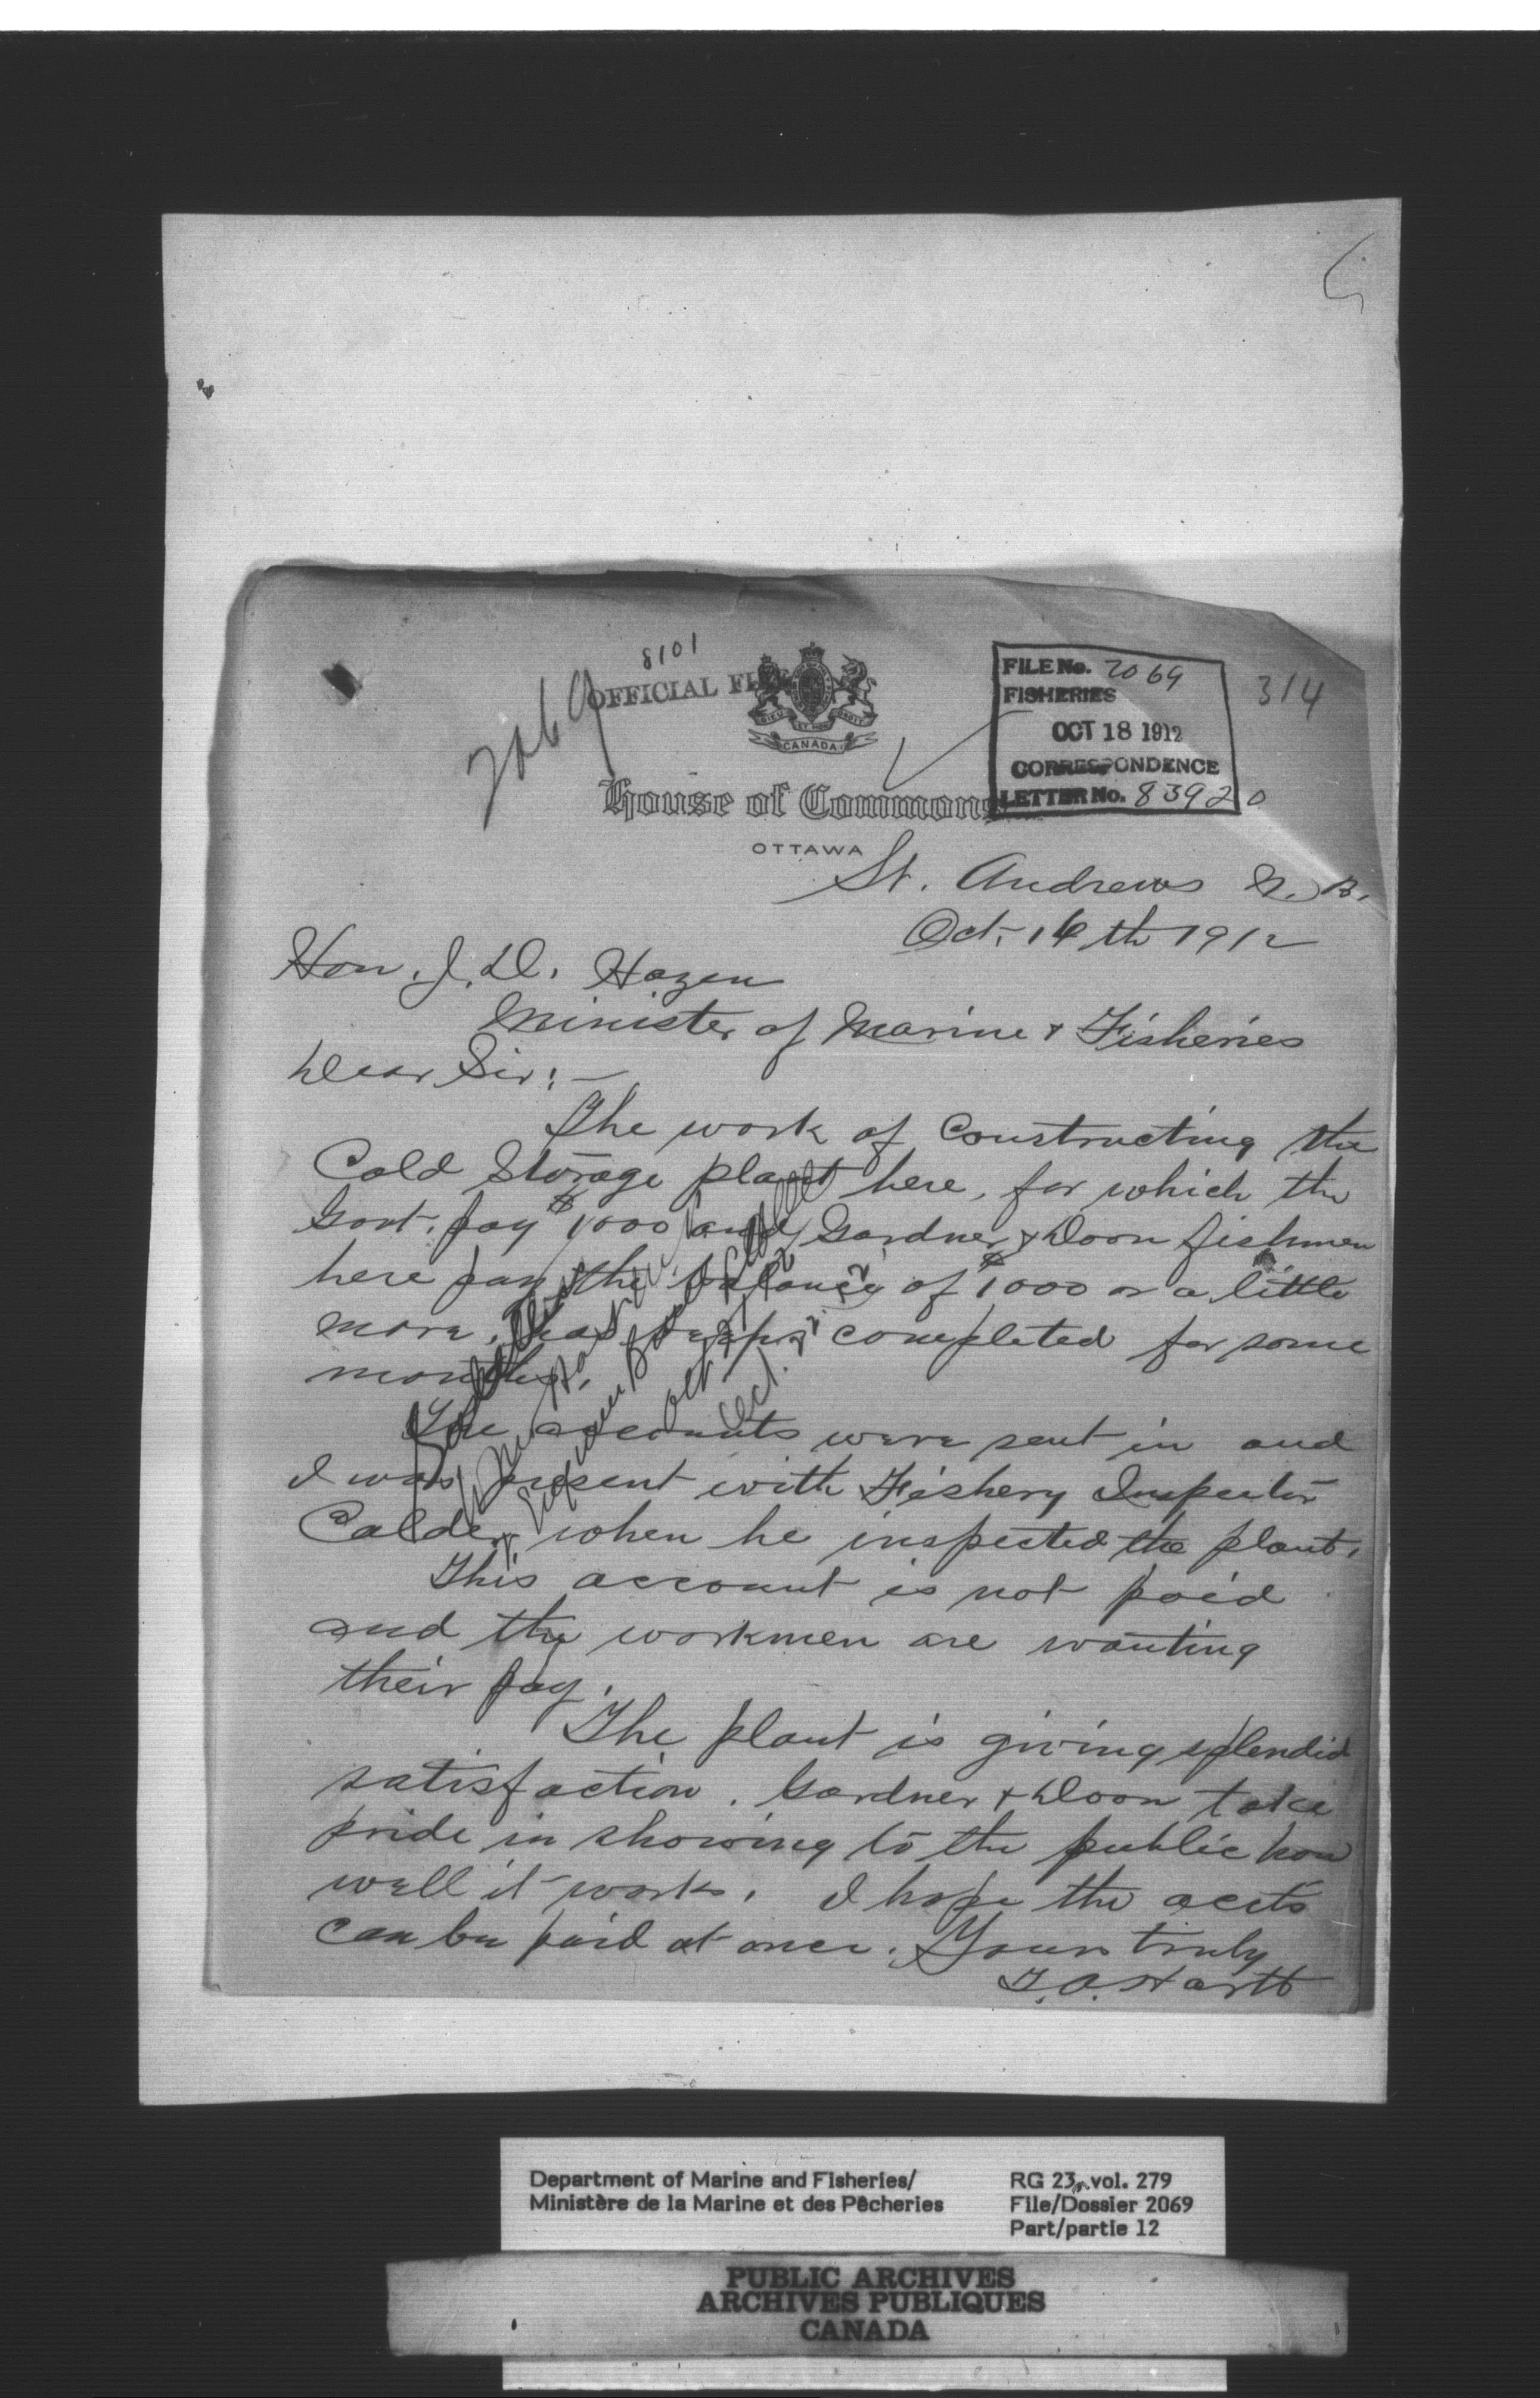 8101
2069
OFFICIAL FILE
DIEU ET MON DROIT
CANADA
House of Commons
OTTAWA
FILE No. 2069
FISHERIES
OCT 18 1912
CORRESPONDENCE
LETTER No. 83920
314
St. Andrews N.B.
Oct. 16th 1912
Hon. J. D. Hazen
Minister of Marine & Fisheries
Dear Sir:—
The work of Constructing the
Cold Storage plant here, for which the
Govt. pay $1000 and Gardner & Doon fishmen
here pay the balance of $1000 or a little
more, has been completed for some
months.
The accounts were sent in and
I was present with Fishery Inspector
Calder when he inspected the plant.
This account is not paid
and the workmen are wanting
their pay.
The plant is giving splendid
satisfaction. Gardner & Doon take
pride in showing to the public how
well it works. I hope the accts
can be paid at once. Yours truly
T. A. Hartt
Department of Marine and Fisheries/
Ministère de la Marine et des Pêcheries
RG 23, vol. 279
File/Dossier 2069
Part/partie 12
PUBLIC ARCHIVES
ARCHIVES PUBLIQUES
CANADA